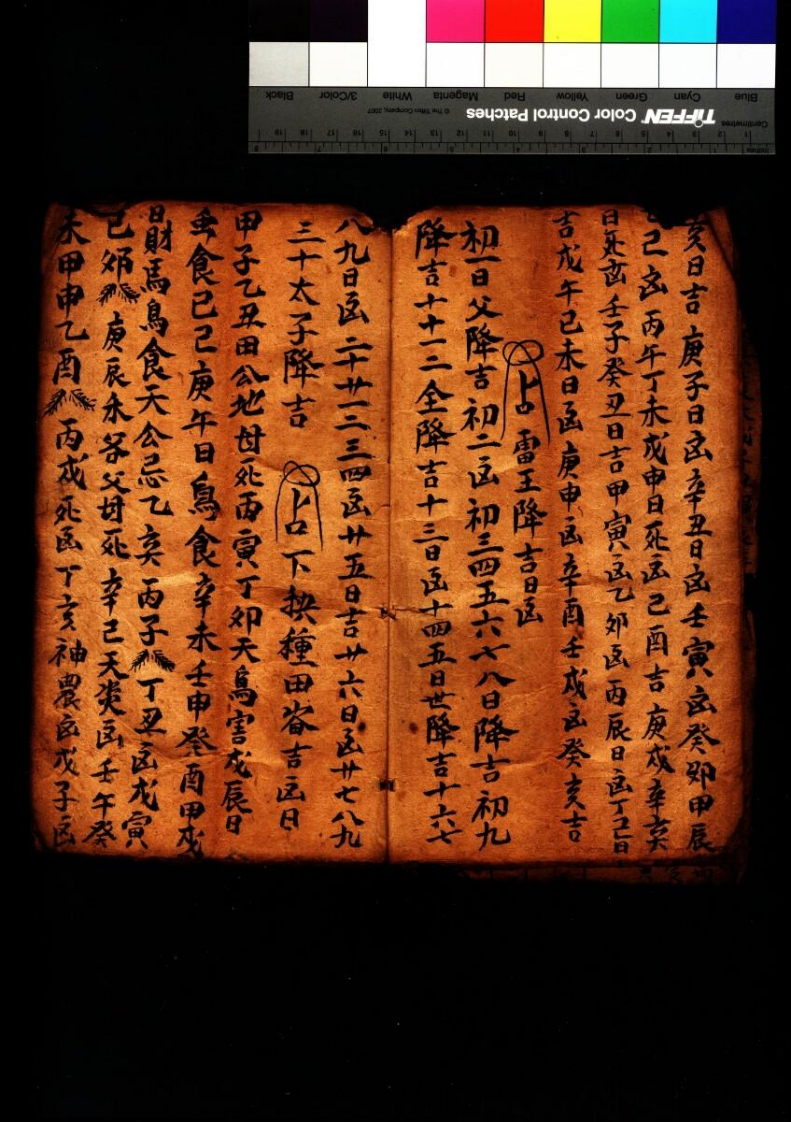 亥日吉庚子日凶辛丑日凶壬寅凶癸卯甲辰
己凶丙午丁未戊申日死凶己酉吉庚戌辛亥
日死凶壬子癸丑日吉甲寅凶乙卯凶丙辰日凶丁己日
吉戊午己未日凶庚申凶辛酉壬戌凶癸亥吉
占雷王降吉日凶
初一日父降吉初二凶初三四五六七八日降吉初九
降吉十十一二全降吉十三日凶十四五日世降吉十六七
八九日凶二十廿一二三四凶廿五日吉廿六日凶廿七八九
三十太子降吉
占下秧種田吉凶日
甲子乙丑田公地母死丙寅丁卯天鳥害戊辰日
虫食己己庚午日鳥食辛未壬申癸酉甲戌
日財馬鳥食天公忌乙亥丙子丁丑凶戊寅
己卯庚辰禾谷父母死辛己天災凶壬午癸
未甲申乙酉丙戌死凶丁亥神農凶戊子凶
TIFFEN Color Control Patches
© The Tiffen Company, 2007
Blue Cyan Green Yellow Red Magenta White 3/Color Black
Centimetres
Inches